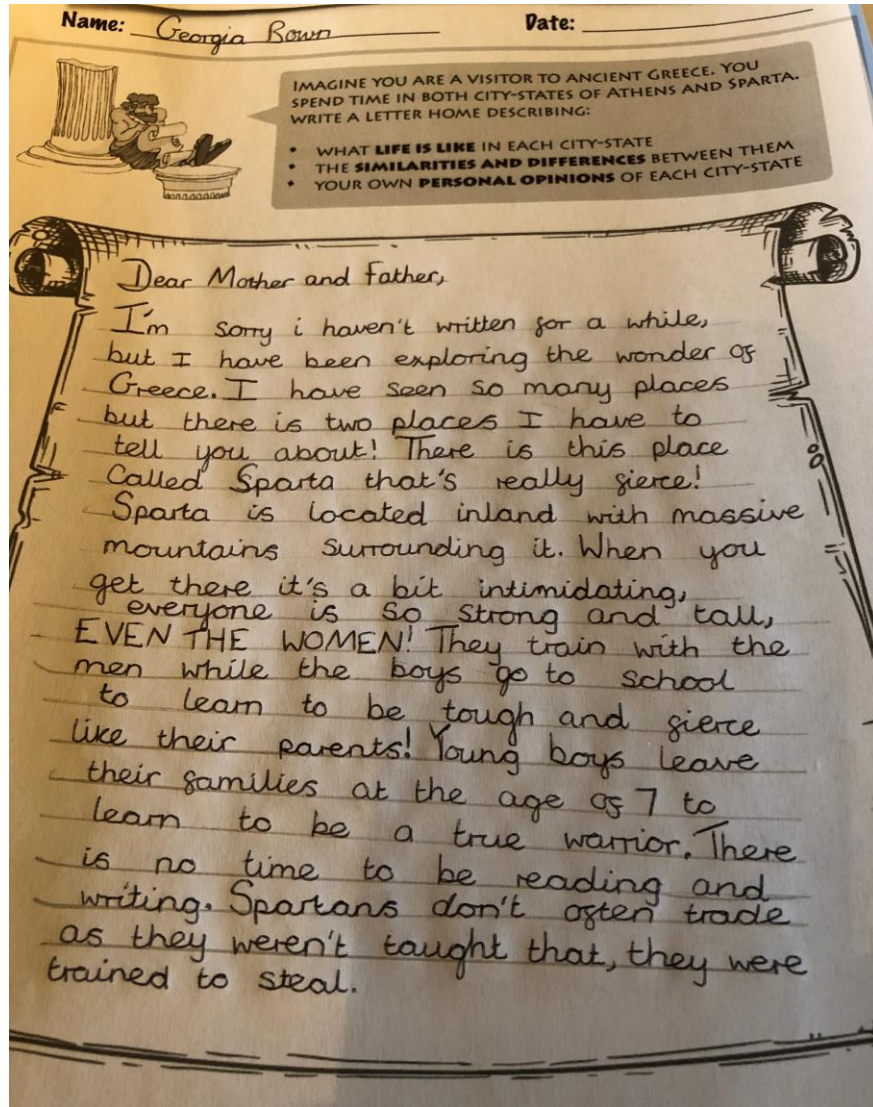 Name: Georgia Bown Date:
IMAGINE YOU ARE A VISITOR TO ANCIENT GREECE. YOU
SPEND TIME IN BOTH CITY-STATES OF ATHENS AND SPARTA.
WRITE A LETTER HOME DESCRIBING:
• WHAT LIFE IS LIKE IN EACH CITY-STATE
• THE SIMILARITIES AND DIFFERENCES BETWEEN THEM
• YOUR OWN PERSONAL OPINIONS OF EACH CITY-STATE
Dear Mother and Father,
I'm sorry i haven't written for a while,
but I have been exploring the wonder of
Greece. I have seen so many places
but there is two places I have to
tell you about! There is this place
Called Sparta that's really fierce!
Sparta is located inland with massive
mountains surrounding it. When you
get there it's a bit intimidating,
everyone is so strong and tall,
EVEN THE WOMEN! They train with the
men while the boys go to school
to learn to be tough and fierce
like their parents! Young boys leave
their families at the age of 7 to
learn to be a true warrior. There
is no time to be reading and
writing. Spartans don't often trade
as they weren't taught that, they were
trained to steal.